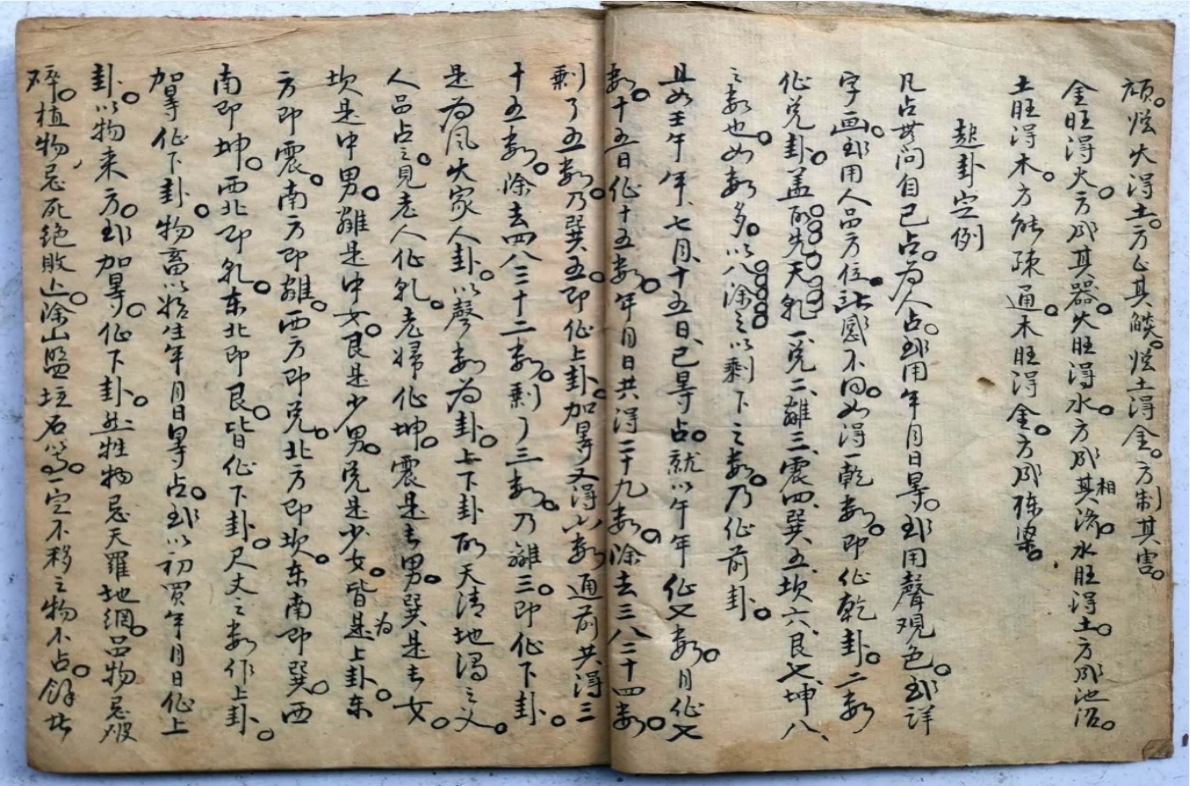 頑。炫火得土。方止其燄。炫土得金。方制其害。
金旺得火。方成其器。火旺得水。方成其相濟。水旺得土。方成池沼。
土旺得木。方能疎通。木旺得金。方成棟梁。
起卦定例
凡占無問自己占。為人占。或用年月日時。或用聲观色。或詳
字画。或用人品方位。訣感不同。如得一乾数。即作乾卦。二数
作兌卦。盖取先天乹一、兌二、離三、震四、巽五、坎六、艮七、坤八、
之数也。如数多。以八除之。以剩下之数。乃作前卦。
且如壬午年、七月、十五日、巳時占。就以午年作七数。月作七
数。十五日作十五数。年月日共得二十九数。除去三八二十四数。
剩了五数。乃巽五。即作上卦。加時又得六数。通前共得三
十五数。除去四八三十二数。剩了三数。乃離三。即作下卦。
是为風火家人卦。以聲数为卦。上下卦取天清地濁之义。
人品占之。見老人作乹。老婦作坤。震是長男。巽是長女。
坎是中男。離是中女。艮是少男。兌是少女。皆是为上卦。东
方即震。南方即離。西方即兌。北方即坎。东南即巽。西
南即坤。西北即乹。东北即艮。皆作下卦。尺丈之数作上卦。
加時作下卦。物畜以始生年月日時占。或以初買年月日作上
卦。以物来方。或加時。作下卦。然牲物忌天羅地網。品物忌破
碎。植物忌死絶敗。止除山盤垣石等。一定不移之物不占。餘皆